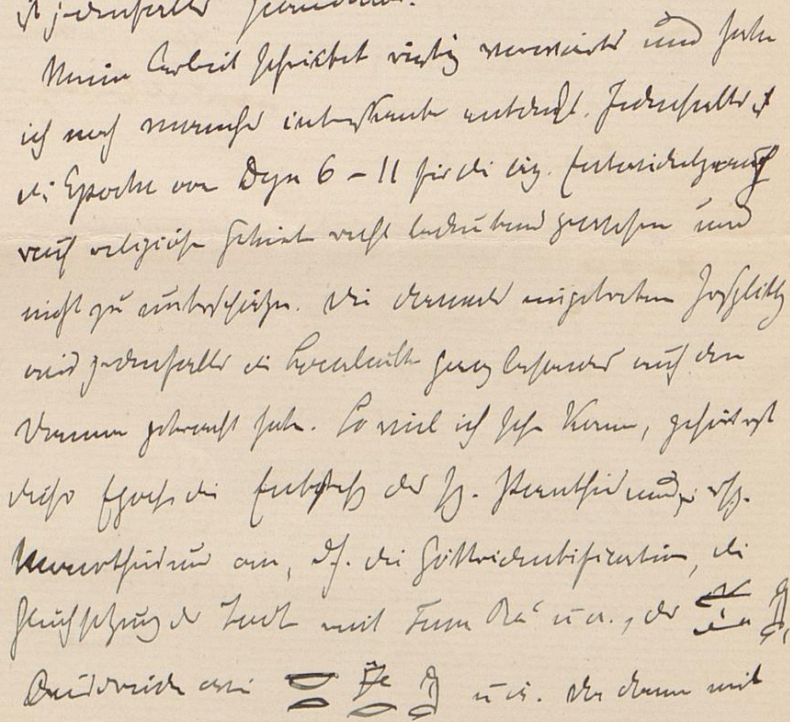 ist jedenfalls
Meine Arbeit schreitet rüstig vorwärts und habe
ich noch manches interessante entdeckt. Jedenfalls ist
die Epoche von Dyn 6 – 11 für die äg. Entwickelung auch
auf religiösem Gebiet recht bedeutend gewesen und
nicht zu unterschätzen. Die damals eingetretene
wird jedenfalls die Localculte ganz besonders auf den
gebracht haben. So viel ich sehen kann, gehört erst
dieser Epoche die Entstehung des sg. Pantheismus, resp.
an, d.h. die Götteridentification, die
Gleichsetzung der Todt mit Tum Râ u. a., der
Ausdrücke wie u. a. der dann mit